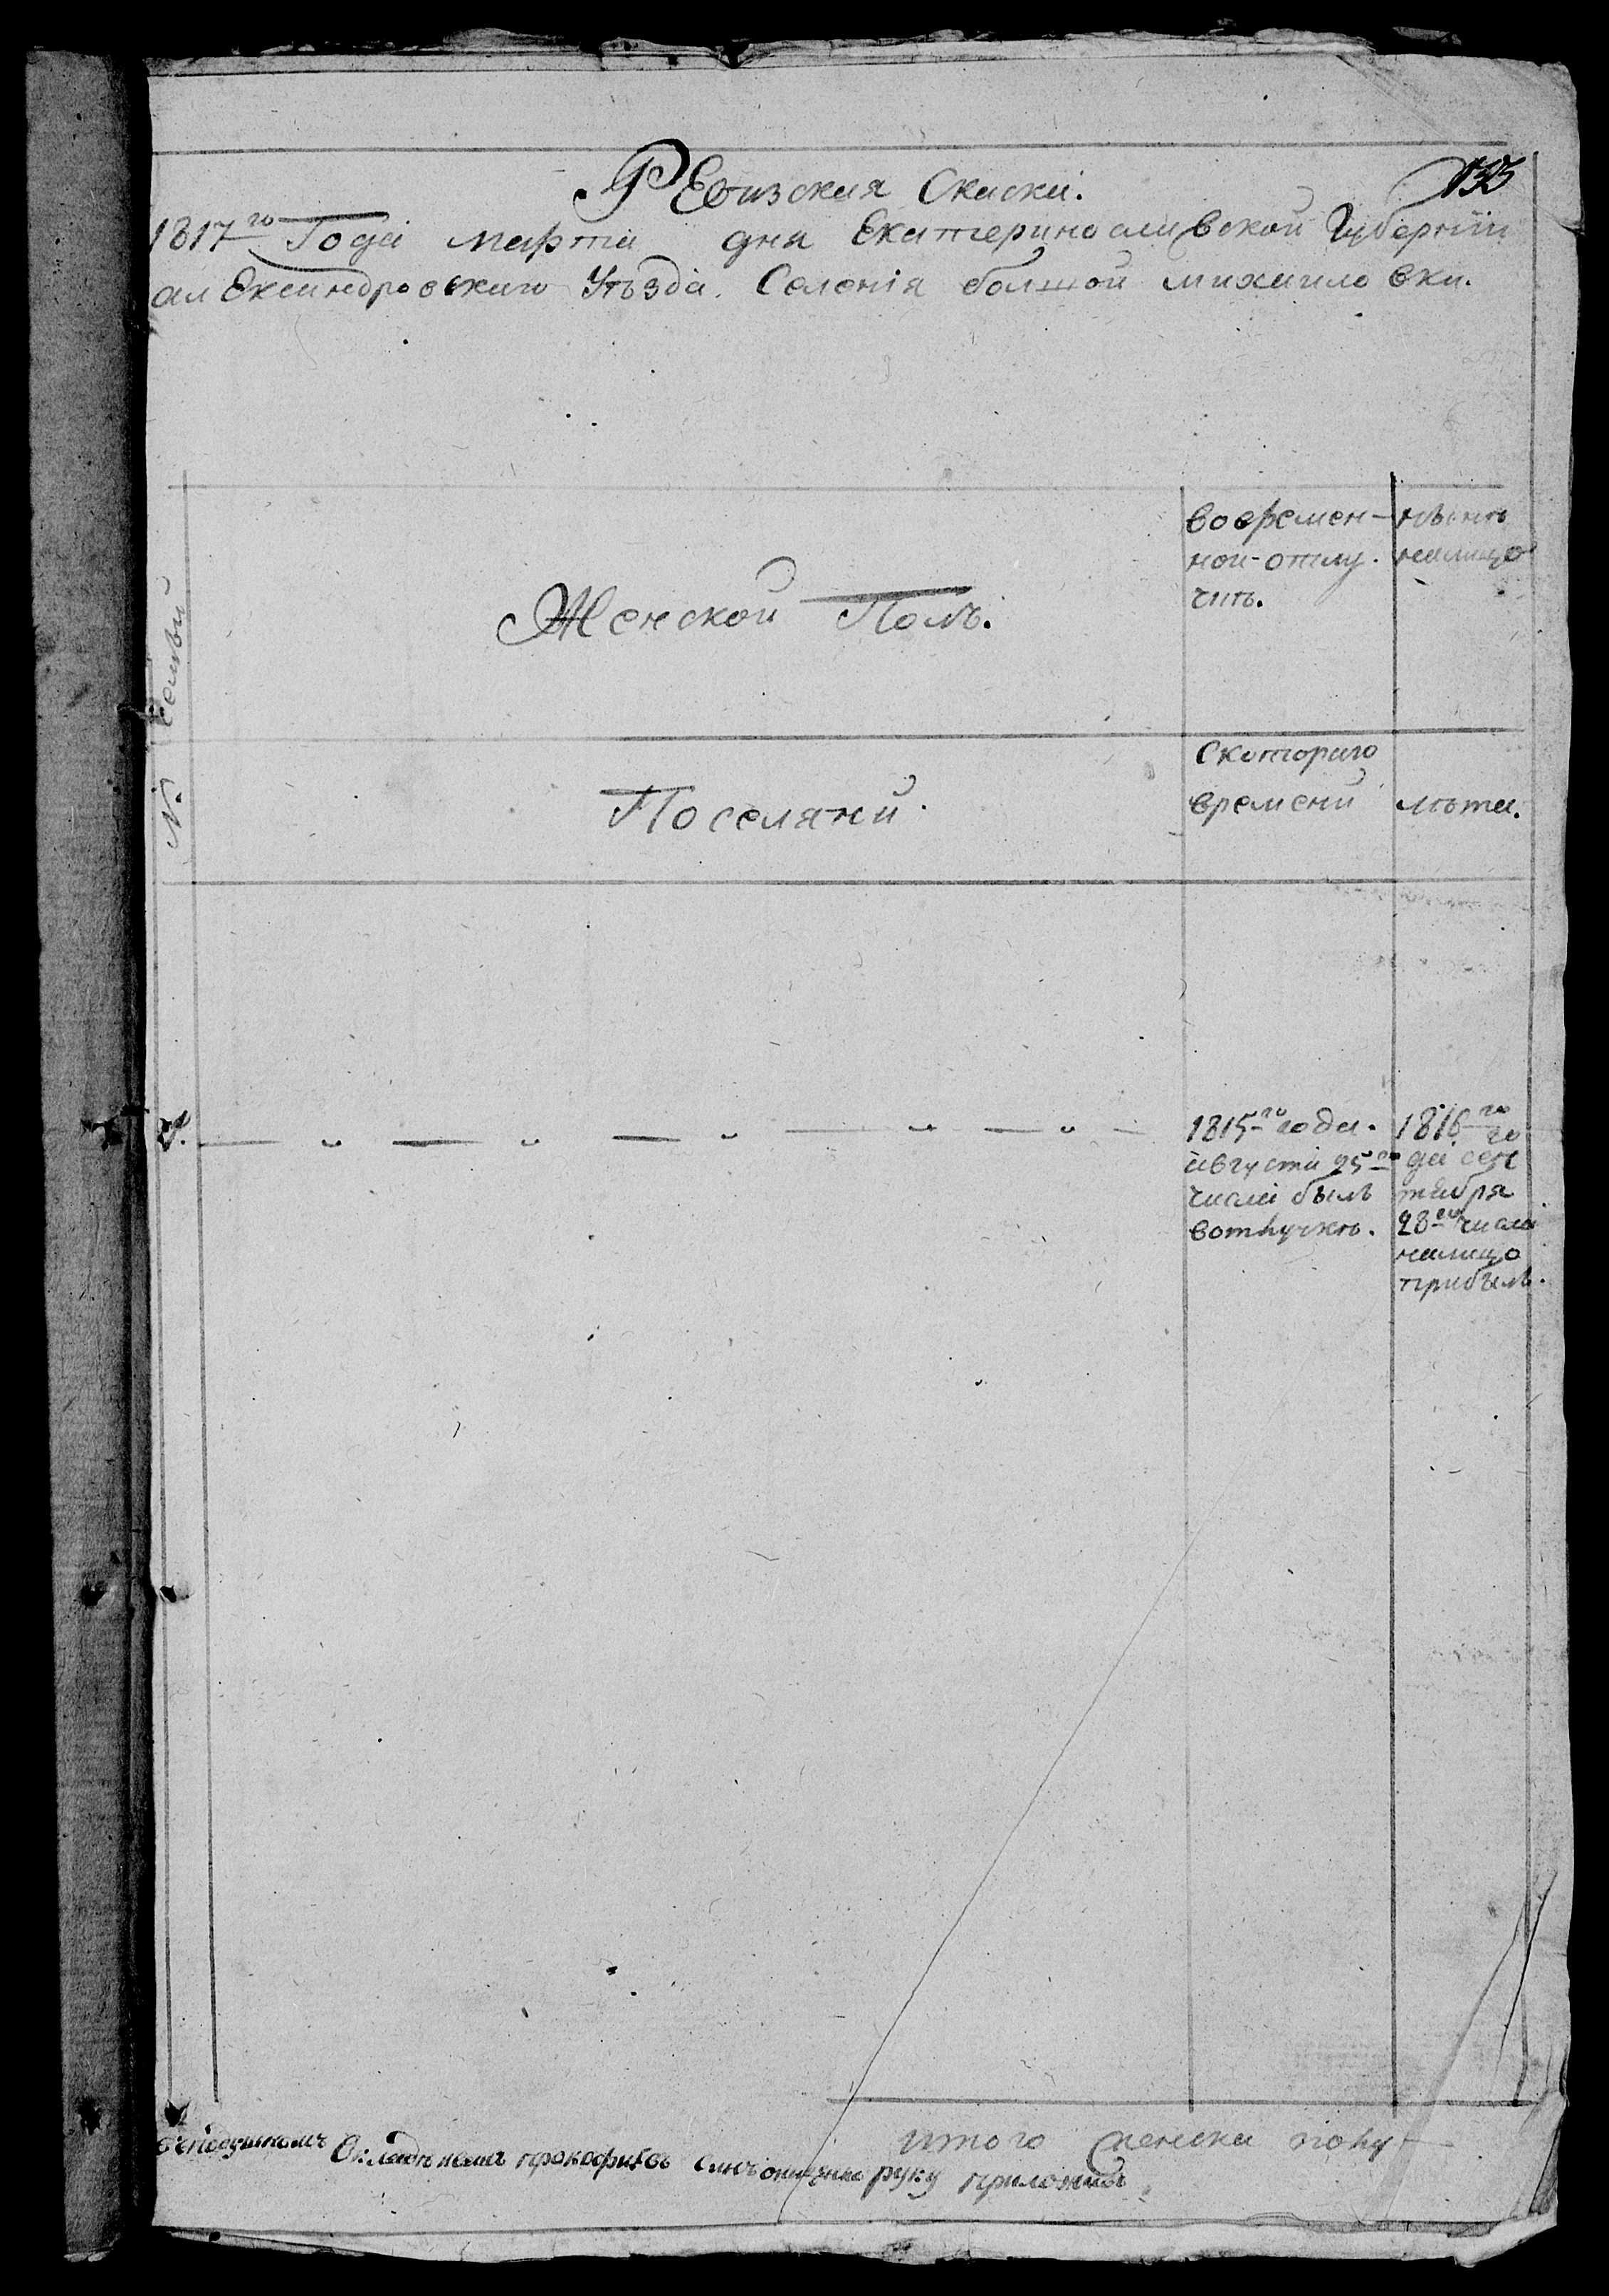 135
РЕвизская Скаска.
1817го Года марта дня Екатеринославской Губернїи
алЕксандровскаго Уѣзда. Селенїя болшой михаиловки.
№ Семьи
Женской Полъ.
вовремен-
ной-отлу-
чкѣ.
нынѣ
налицо
Поселяни
Скотораго
времени
лѣта.
1815го года.
августа 25го
числа былъ
вотлучкѣ.
1816го го
да сен
тября
28го числа
налицо
прибылъ.
Итого женска полу
Окладѣ прокофиевъ руку приложилъ